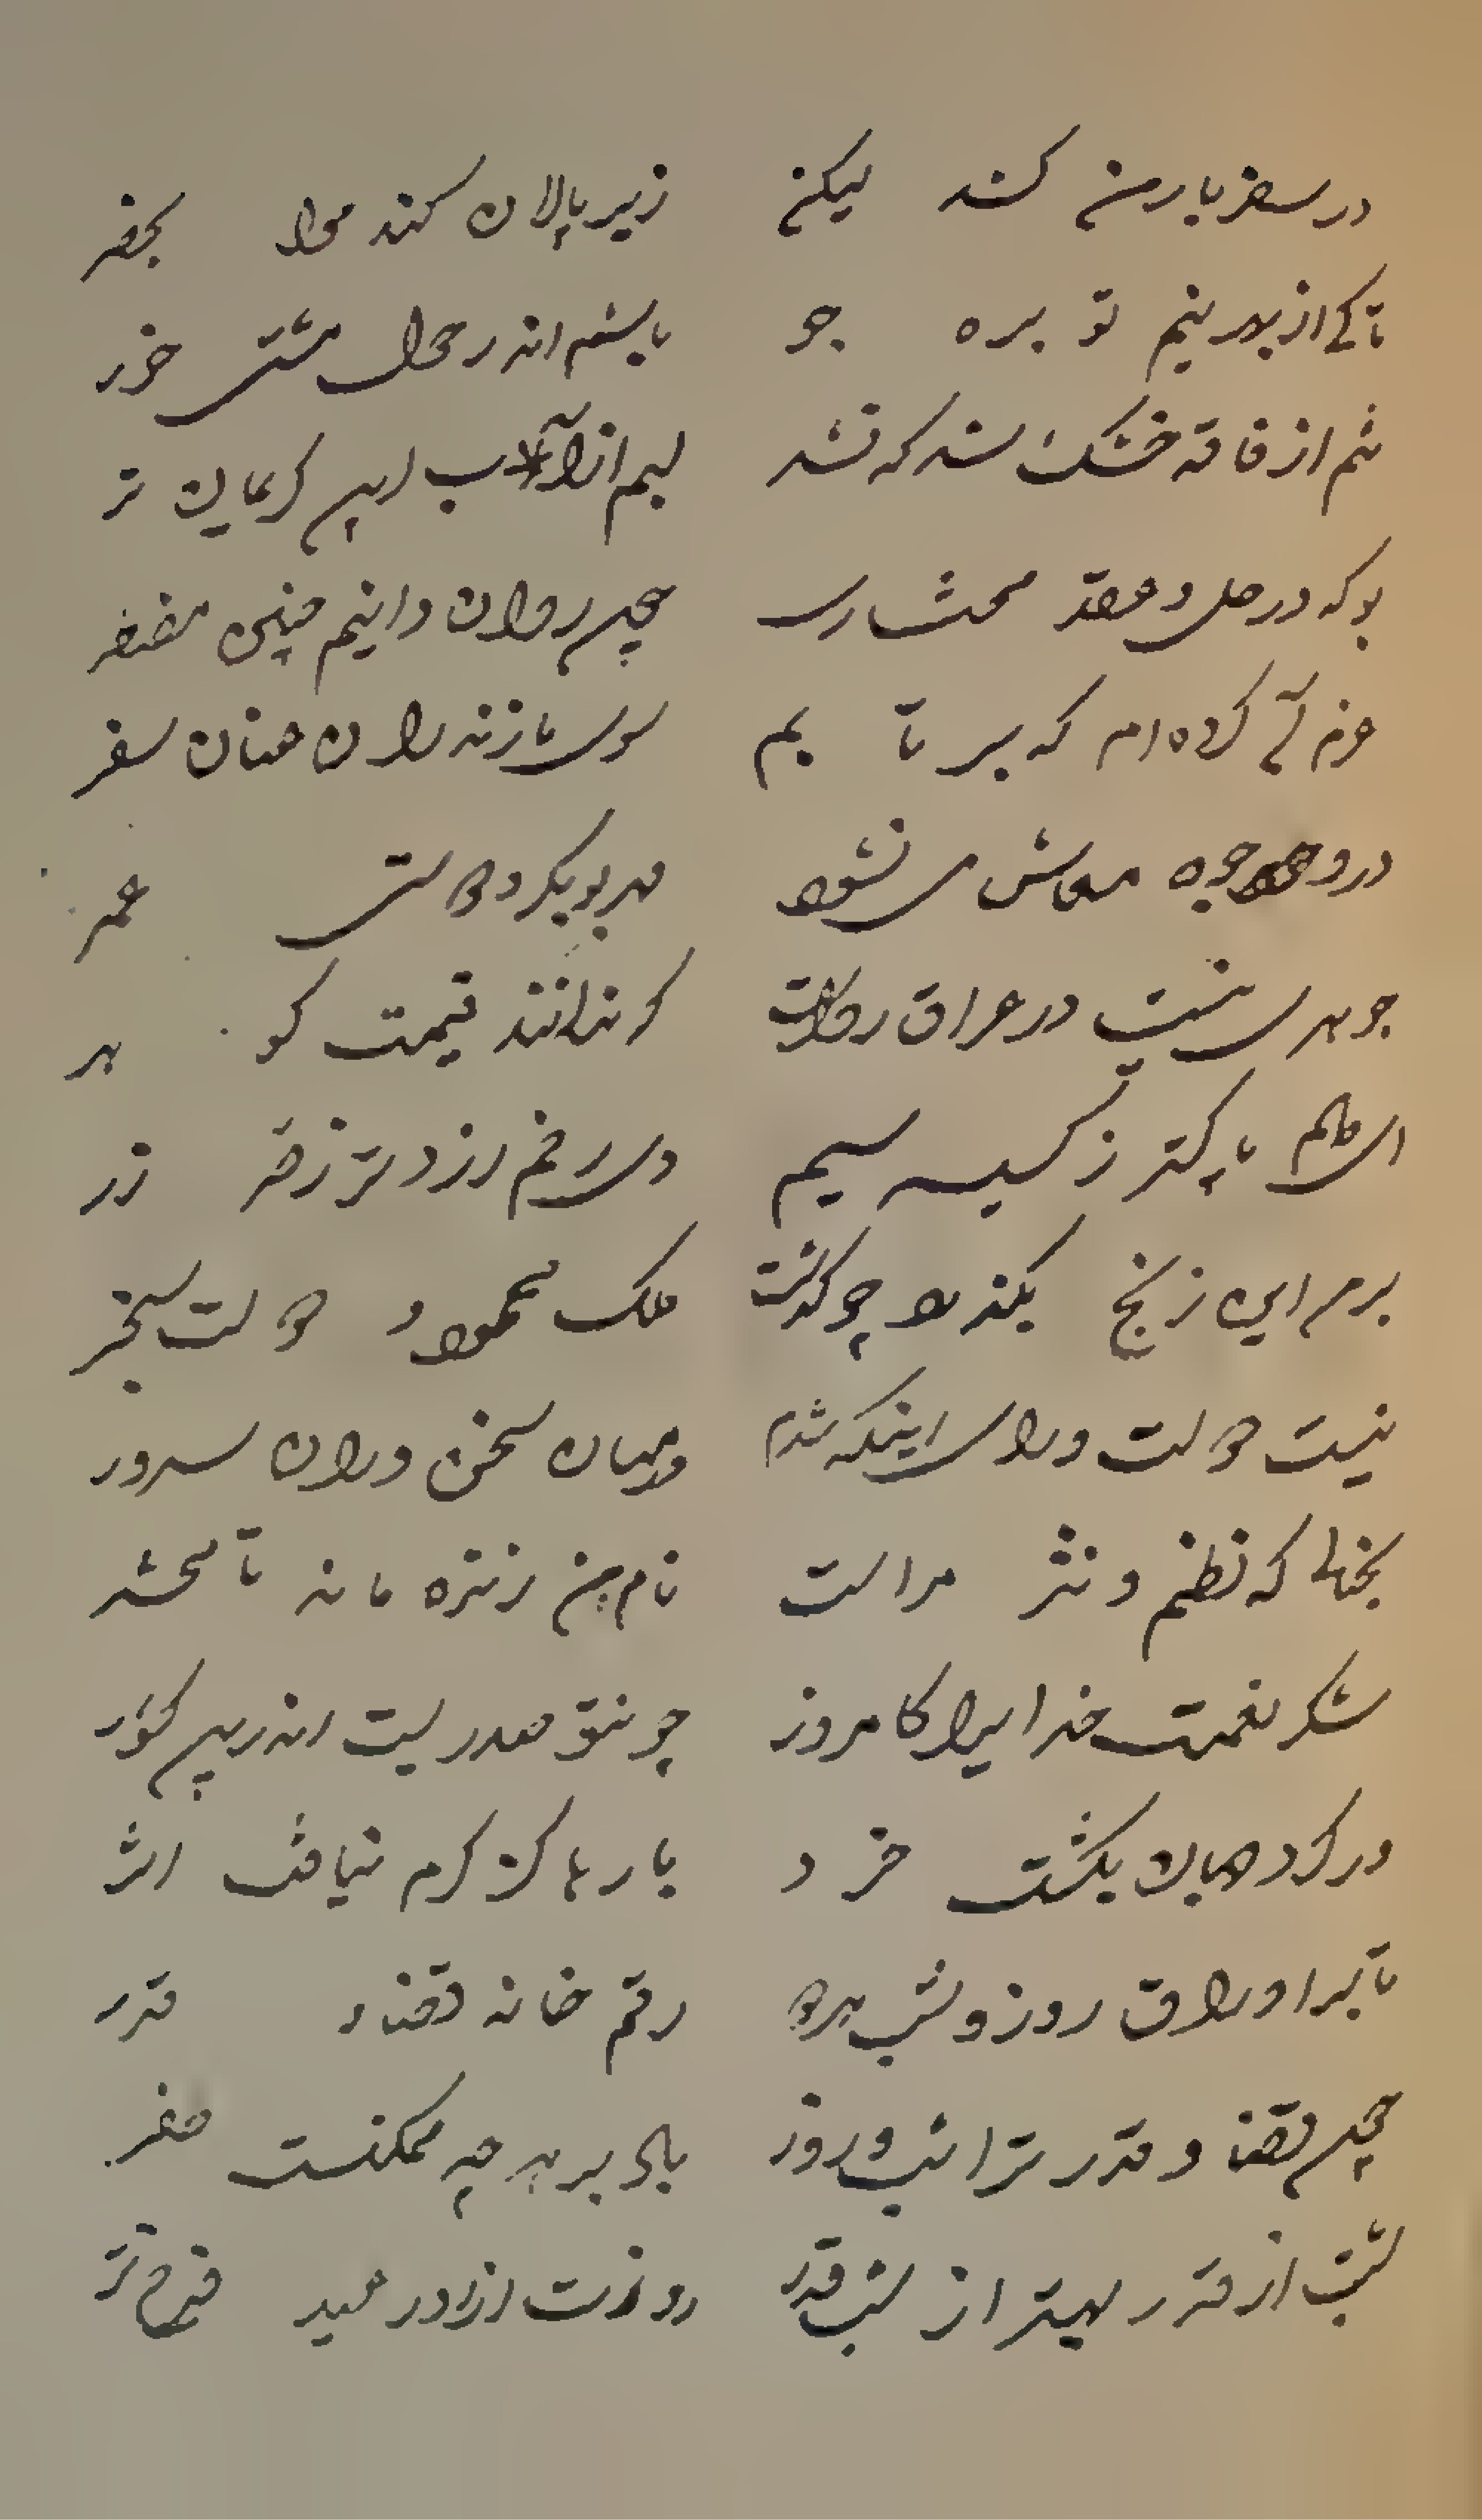 در سفر بار من کشد لیکن زیر پالان کند مرا بحضر
تا کی از بهر نیم توبره جو باشم اندر جوال مشتی خر
نم از فاقه خشک شد که نشد لبم از آب این کریمان تر
بو که در حل و عقد محشاری همچو روان دانیم چنین مضطر
عزم آن کرده‌ام که بر تابم سوی مازندران عنان سفر
در وجوه معاش می نشود مهر بوبکر و دوستی عمر
جوهری نیست در عراق رواست گر ندانند قیمت گوهر
ای پاکتر ز کیسه سیم وی رخم زردتر ز قر زر
بر من این رنج بگذرد چو گذشت ملک محمود و دولت سنجر
نیست دولت ورای اینکه شدم در میان سخن وران سرور
بخدائی که نظم و نثر مراست نام من زنده ماند تا محشر
شکر نعمت خدایرا کامروز چو تو صدریست اندرین کشور
در گرد جهان بگشت خرد بارها کز کرم نیافت اثر
تا بر اوراق روز و شب بود رقم خانه قضا و قدر
همچو قضا و قدر ترا شب و روز باد بر هر چه ممکنست ظفر
شبت از قدر بهتر از شب قدر روزت از روز عید فرخ تر